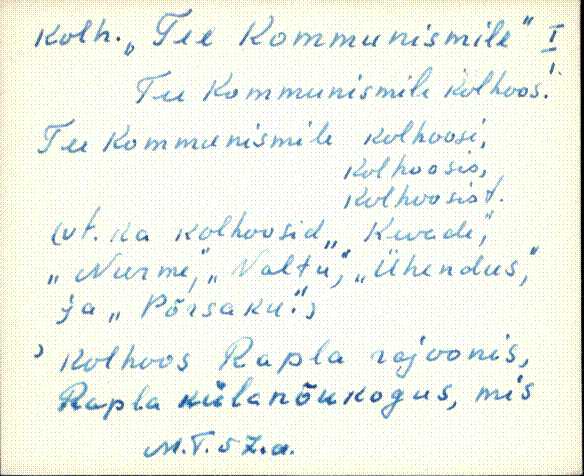 Kolh. „Tee Kommunismile" I
Tee Kommunismile kolhoos.
Tee Kommunismile kolhoosi,
kolhoosis,
kolhoosist.
(vt. ka kolhoosid „Kevade",
„Nurme", „Valtu", „Ühendus",
ja „Põrsaku".)
kolhoos Rapla rajoonis,
Rapla külanõukogus, mis
M.T. 57.a.